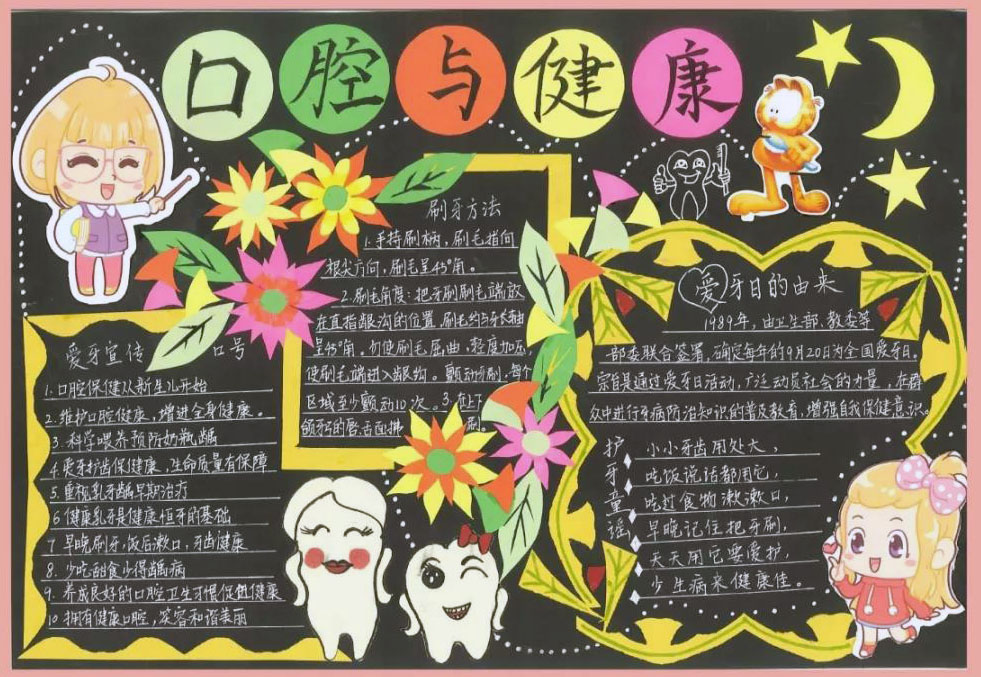 口腔与健康
刷牙方法
1.手持刷柄，刷毛指向
根尖方向，刷毛呈45°角。
2.刷毛角度：把牙刷刷毛端放
在直指龈沟的位置，刷毛约与牙长轴
呈45°角。勿使刷毛屈曲，轻度加压，
使刷毛端进入龈沟。颤动牙刷，每个
区域至少颤动10次。3.在上下
颌牙的唇、舌面拂刷。
爱牙宣传口号
1.口腔保健从新生儿开始
2.维护口腔健康，增进全身健康。
3.科学喂养预防奶瓶龋
4.爱牙护齿保健康，生命质量有保障
5.重视乳牙龋早期治疗
6健康乳牙是健康恒牙的基础
7早晚刷牙，饭后漱口，牙齿健康
8.少吃甜食少得龋病
9.养成良好的口腔卫生习惯促健康
10拥有健康口腔，笑容和谐美丽
爱牙日的由来
1989年，由卫生部、教委等
部委联合签署，确定每年的9月20日为全国爱牙日。
宗旨是通过爱牙日活动，广泛动员社会的力量，在群
众中进行牙病防治知识的普及教育，增强自我保健意识。
护牙童谣
小小牙齿用处大，
吃饭说话都用它，
吃过食物漱漱口，
早晚记住把牙刷，
天天用它要爱护，
少生病来健康佳。